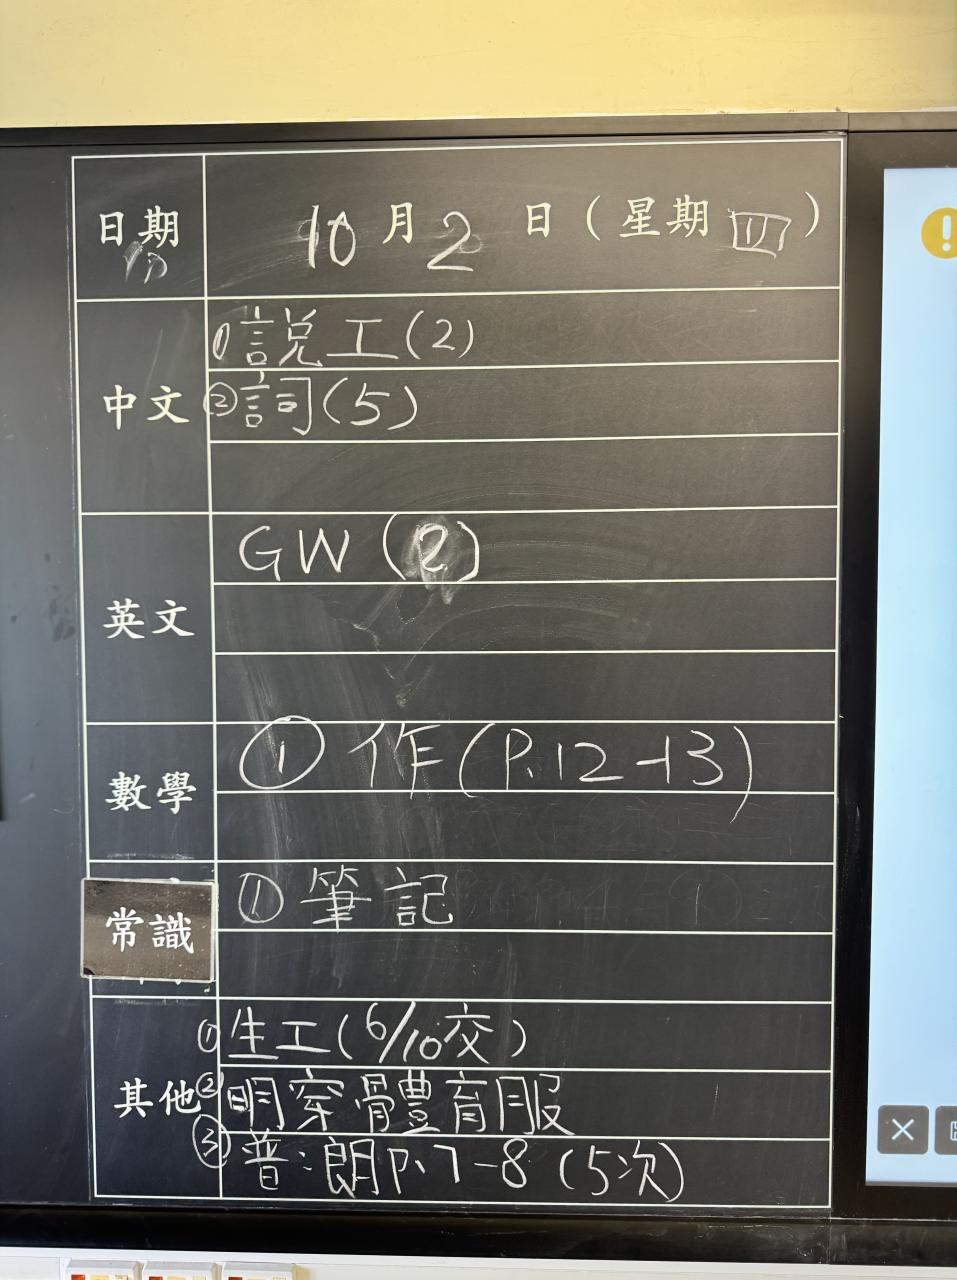 日期 10月2日(星期四)
10
中文 ①說工(2)
②詞(5)
英文 GW (2)
數學 ① 作(P.12-13)
常識 ① 筆記
其他 ① 生工(6/10交)
② 明穿體育服
③ 普:朗P.7-8 (5次)